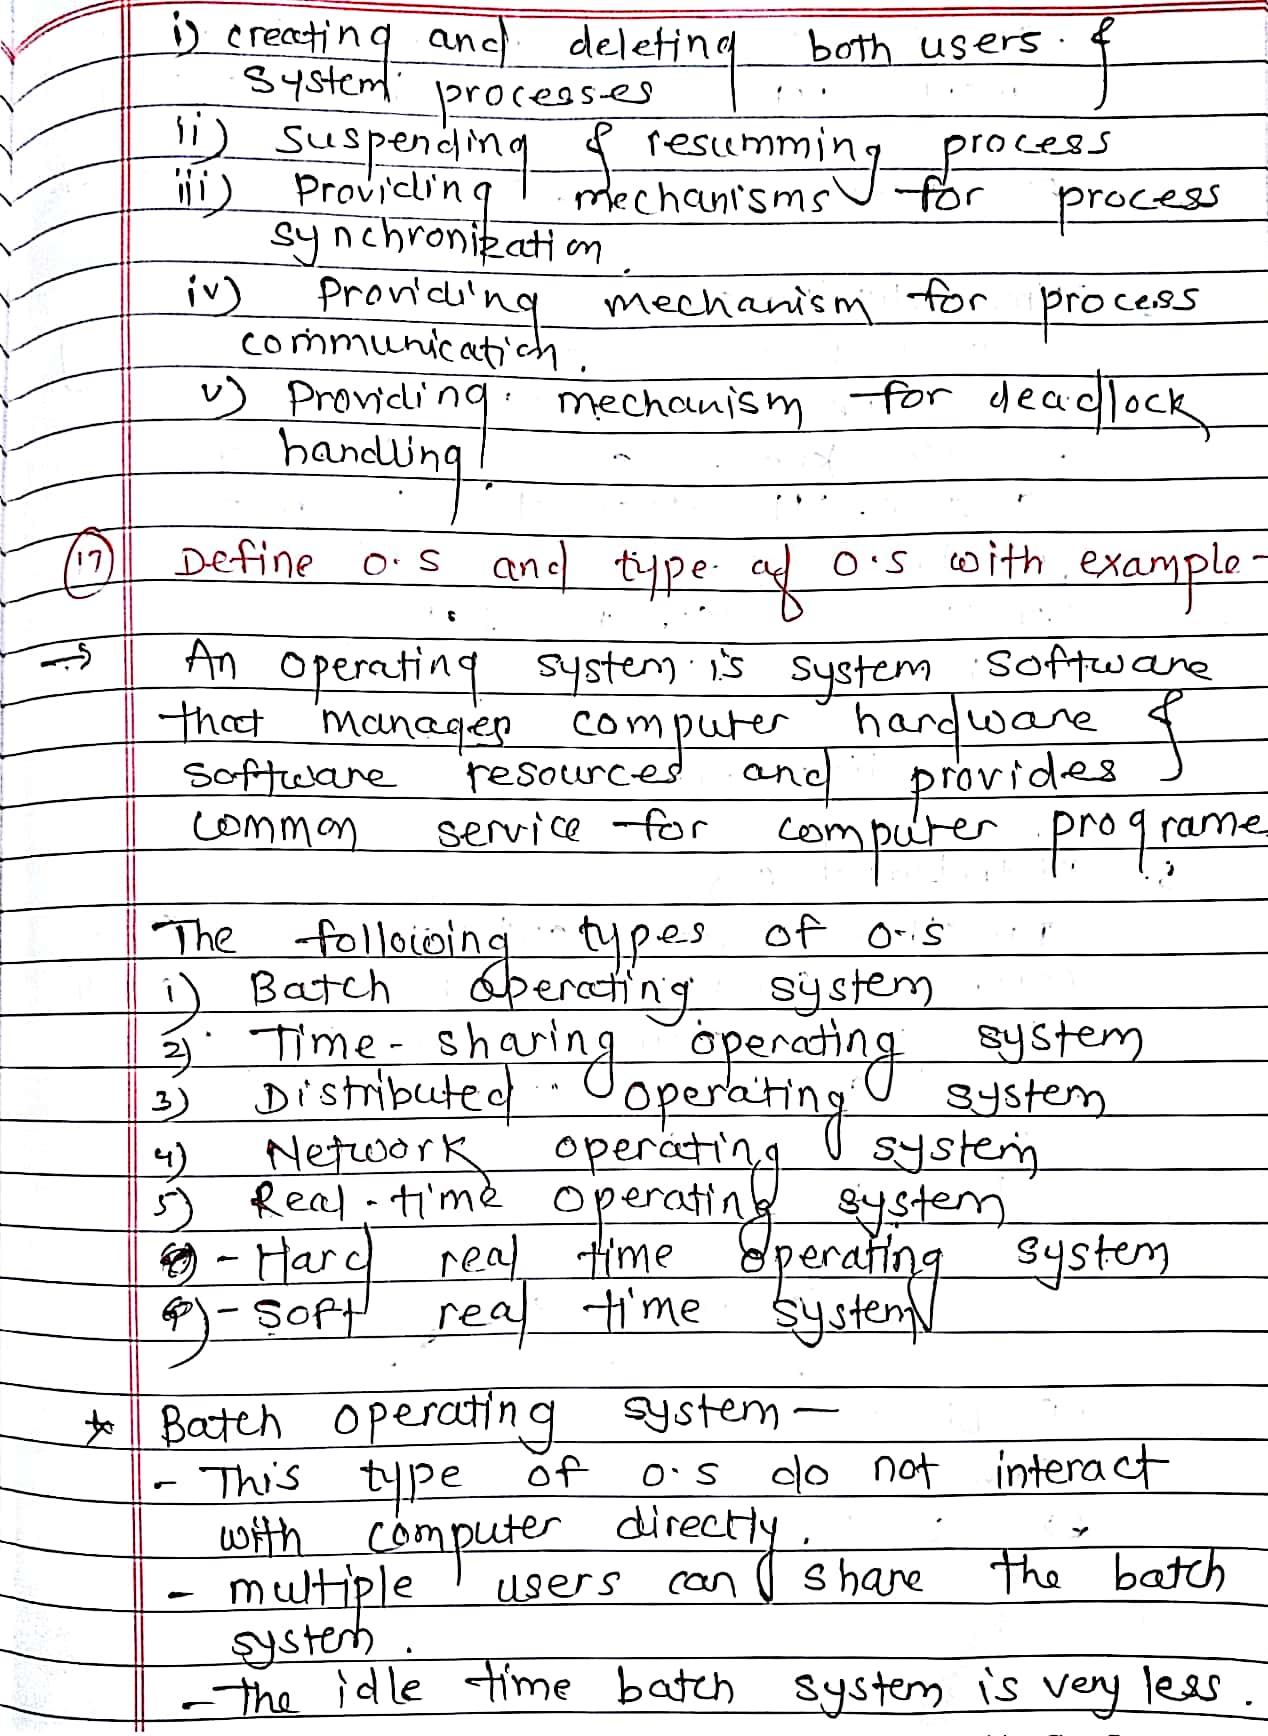 i) creating and deleting both users &
System processes
ii) suspending & resumming process
iii) Providing mechanisms for process
synchronization
iv) Providing mechanism for process
communication.
v) Providing mechanism for deadlock
handling
17 Define o.s and type of o.s with example -
→ An operating system is system software
that manages computer hardware &
software resources and provides
common service for computer programe
The following types of o.s
1) Batch operating system
2) Time-sharing operating system
3) Distributed operating system
4) Network operating system
5) Real-time operating system
- Hard real time operating system
- Soft real time system
* Batch operating system -
- This type of o.s do not interact
with computer directly.
- multiple users can share the batch
system.
- The idle time batch system is very less.